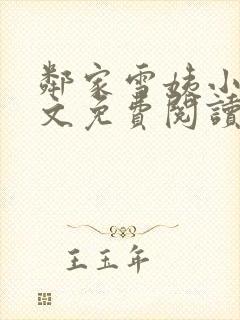 鄰家雪姨小
文免費閱讀
王玉年